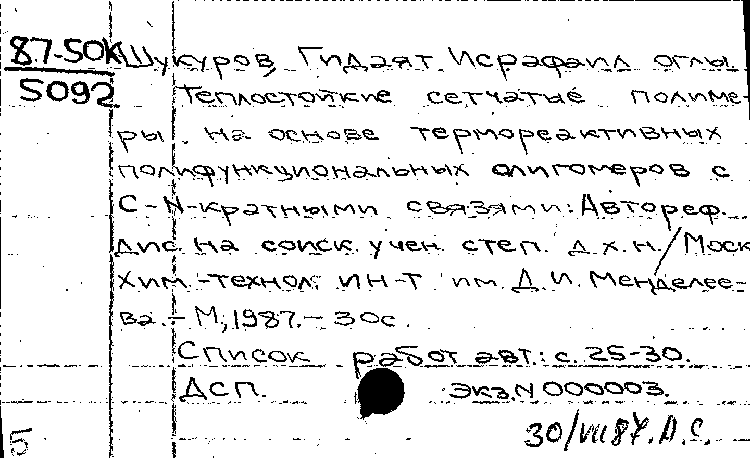 87-50К Шукуров Гидаят Исрафаил оглы.
5092 Теплостойкие сетчатые полиме-
ры на основе термореактивных
полифункциональных олигомеров с
C-N-кратными связями: Автореф.
дис. на соиск. учен. степ. д.х.н./Моск
хим.-технол. ин-т им. Д.И. Менделее-
ва.- М., 1987.- 30с.
Список работ авт.: с. 25-30.
ДСП. Экз.N 000003.
30/VII 87. Д.С.
5